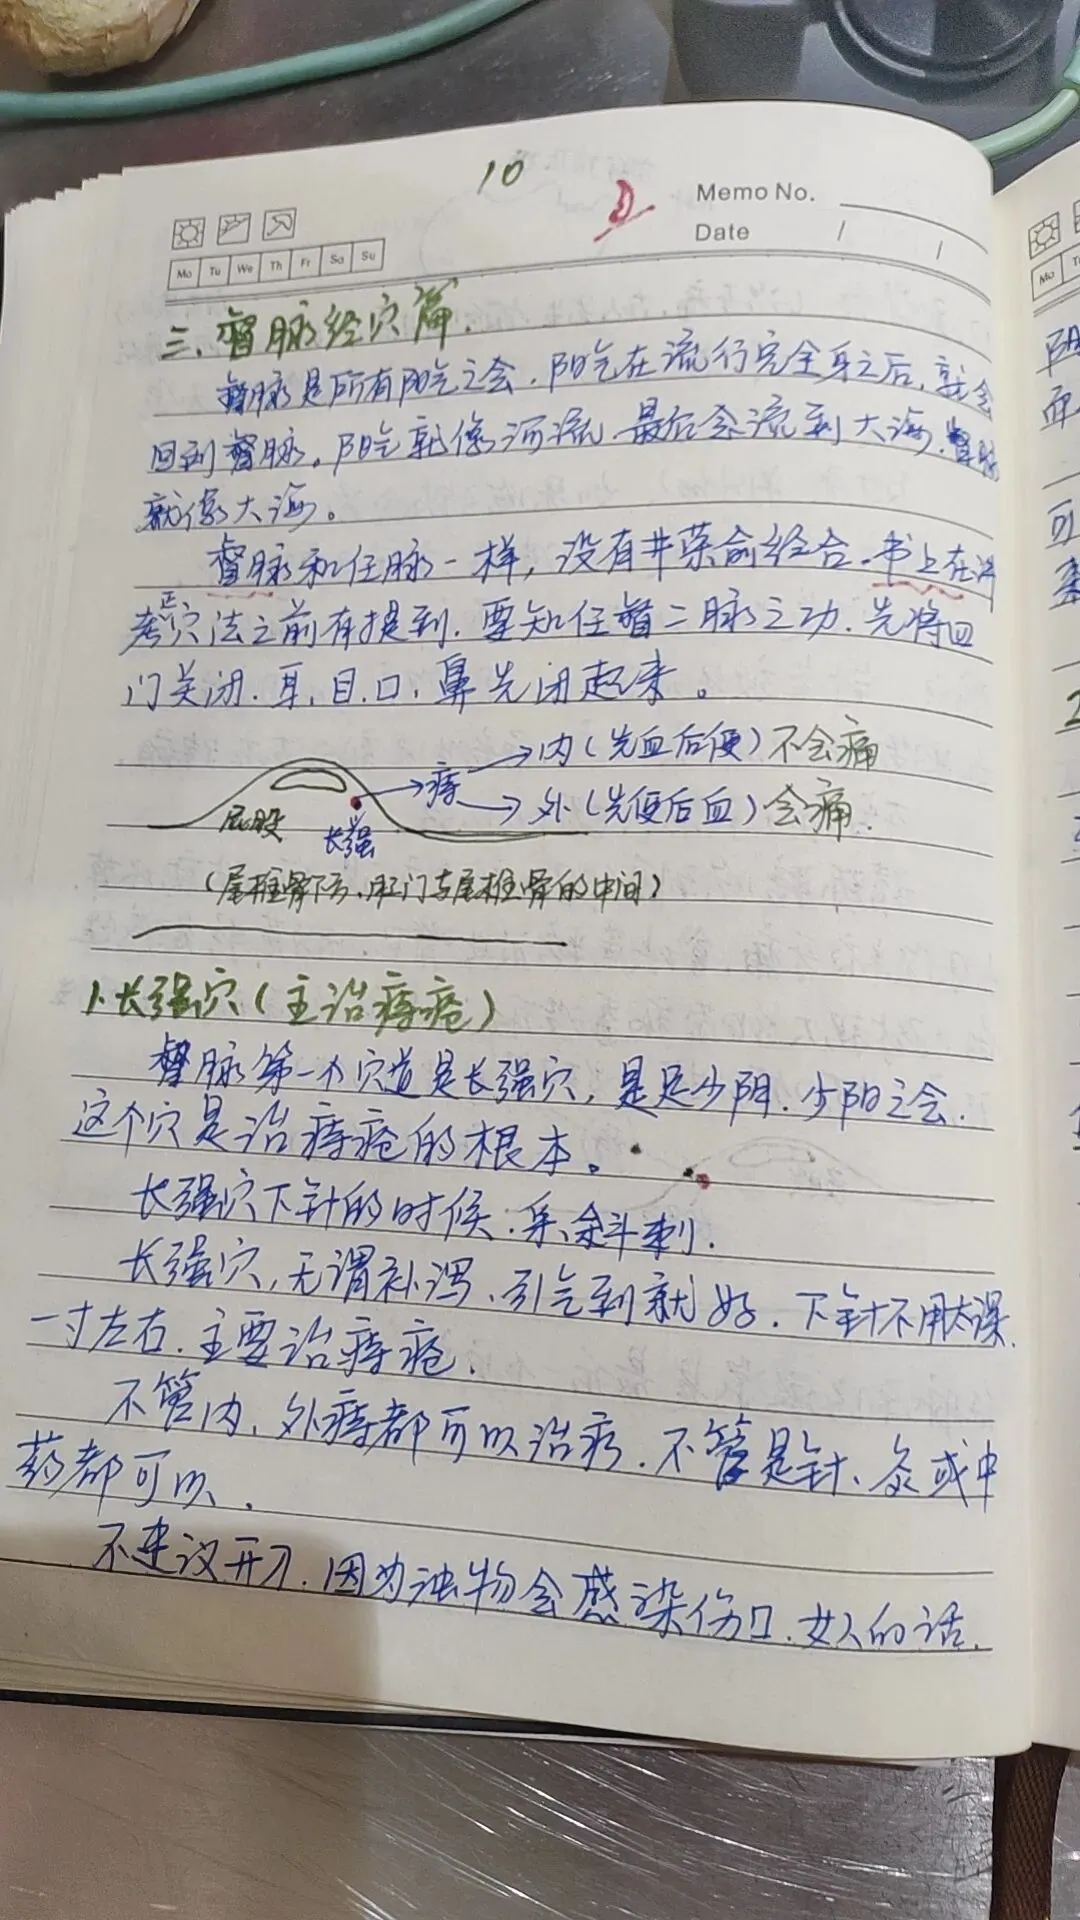 10
Memo No.
Date / /
Mo Tu We Th Fr Sa Su
三、督脉经穴篇.
督脉是所有阳气之会.阳气在流行完全身之后,就会
回到督脉。阳气就像河流.最后会流到大海.督脉
就像大海。
督脉和任脉一样,没有井荥俞经合.书上在讲
考正穴法之前有提到.要知任督二脉之功.先将四
门关闭.耳.目.口.鼻先闭起来。
痔 内(先血后便)不会痛
外(先便后血)会痛.
屁股 长强
(尾椎骨下方.肛门与尾椎骨的中间)
1、长强穴(主治痔疮)
督脉第一个穴道是长强穴,是足少阴.少阳之会.
这个穴是治痔疮的根本。
长强穴下针的时候.采斜刺.
长强穴,无谓补泻、引气到就好.下针不用太深.
一寸左右.主要治痔疮.
不管内、外痔都可以治疗.不管是针、灸或中
药都可以.
不建议开刀.因为浊物会感染伤口.女人的话.
阴
而
可